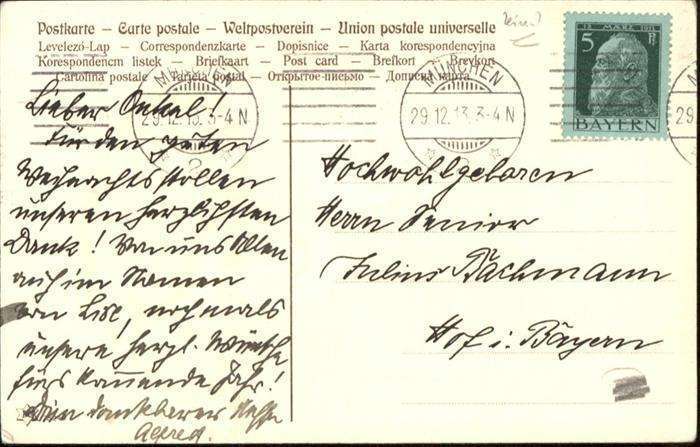 Postkarte – Carte postale – Weltpostverein – Union postale universelle
Levelező-Lap – Correspondenzkarte – Dopisnice – Karta korespondencyjna
Korespondenčni listek – Briefkaart – Post card – Brefkort – Brevkort
Cartolina postale – Tarjeta postal – Открытое письмо – Дописна карта
MÜNCHEN
29.12.13. 3-4 N
2
MÜNCHEN
29.12.13. 3-4 N
2
29
12. MÄRZ 1911
5 Pf
BAYERN
Lieber Onkel!
Für den guten
Weihnachtsstollen
unseren herzlichsten
Dank! Von uns Allen
auch im Namen
von Lise, nochmals
unsere herzl. Wünsche
fürs kommende Jahr!
Dein dankbarer Neffe
Hochwohlgeboren
Herrn Senior
Julius Bachmann
Hof i. Bayern